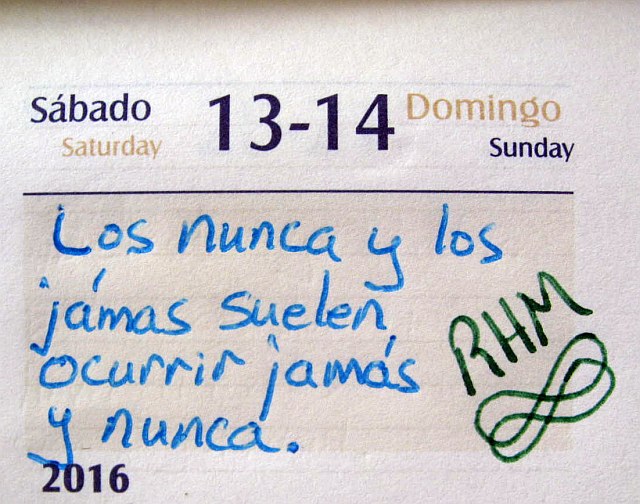 Sábado 13-14 Domingo
Saturday Sunday
Los nunca y los
jámas suelen
ocurrir jamás
y nunca.
RHM
2016